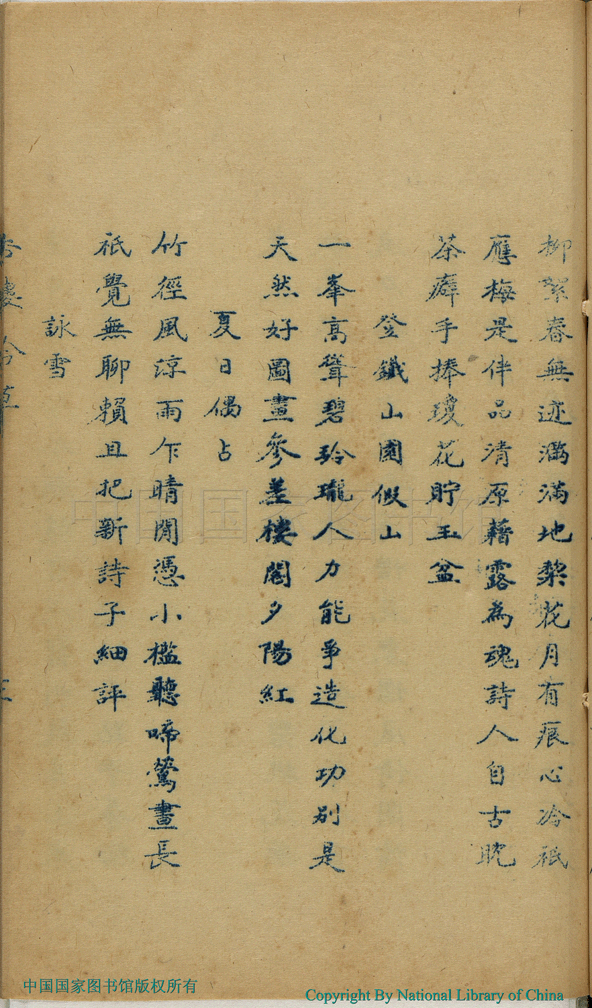 柳絮春無迹滿滿地梨花月有痕心冷祇
應梅是伴品清原藉露為魂詩人自古耽
茶癖手捧瓊花貯玉盆
登鐵山園假山
一峯高聳碧玲瓏人力能爭造化功別是
天然好圖畫參差樓閣夕陽紅
夏日偶占
竹徑風涼雨乍晴閒憑小檻聽啼鶯晝長
祇覺無聊賴且把新詩子細評
詠雪
吟草
三
中国国家图书馆
中国国家图书馆版权所有
Copyright By National Library of China